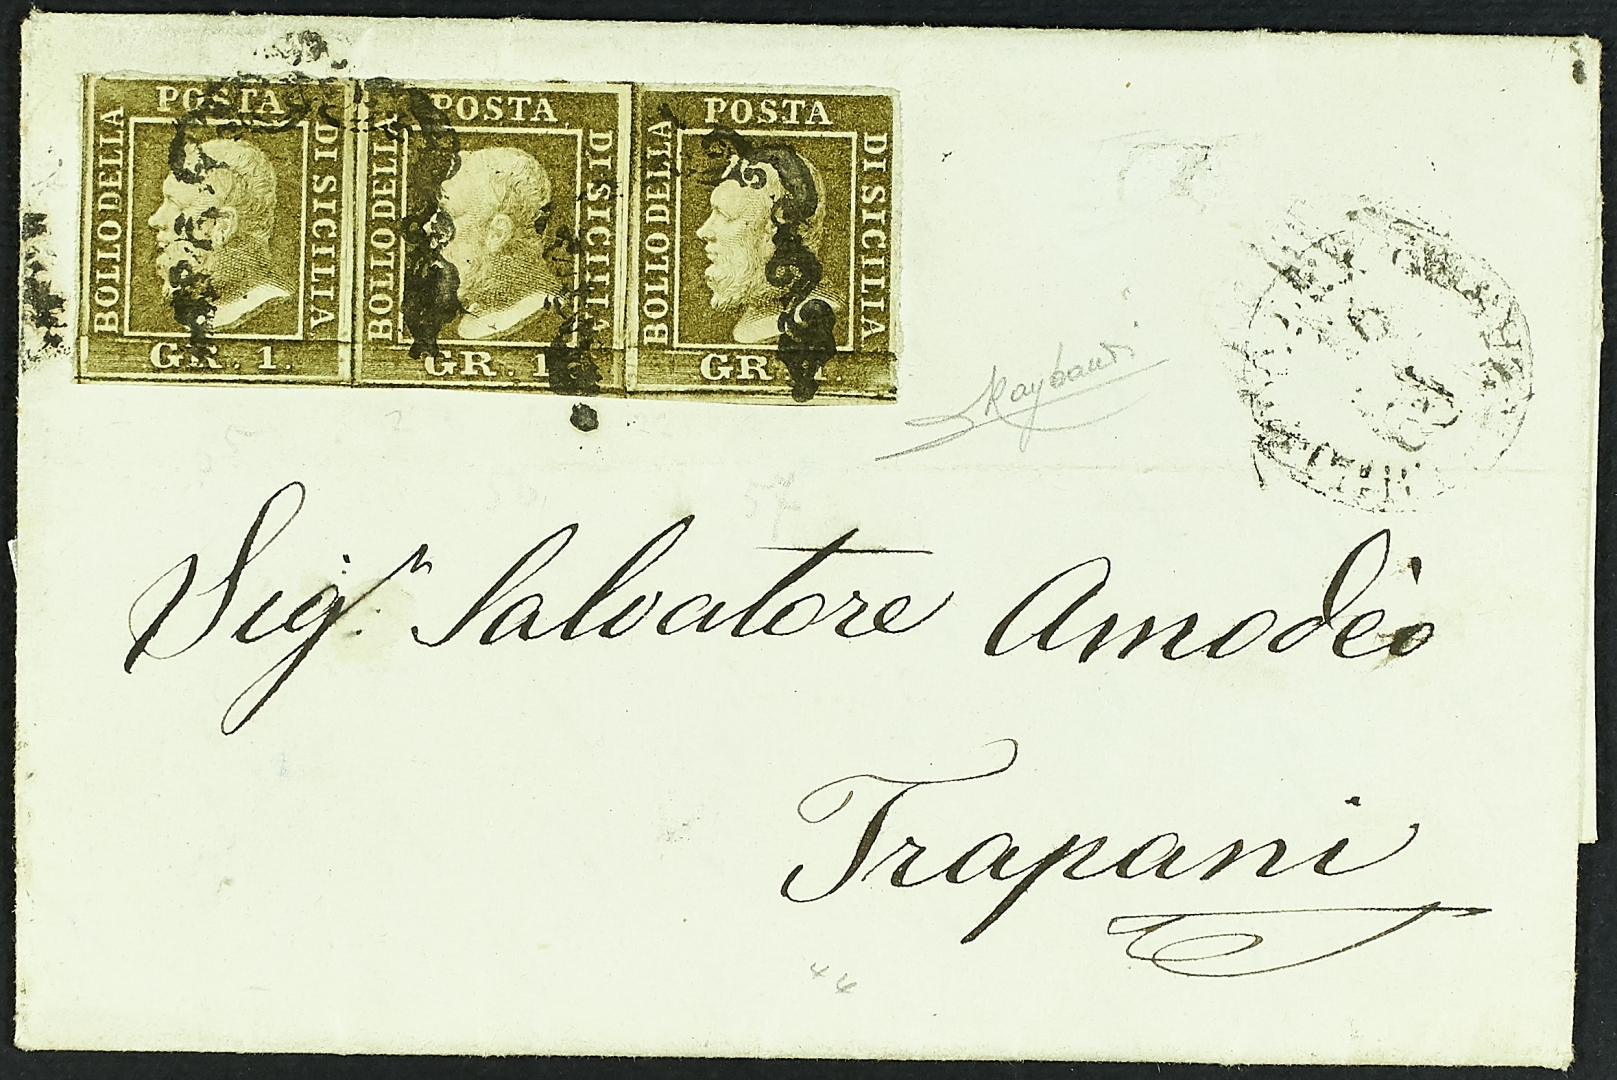 POSTA
BOLLO DELLA
DI SICILIA
GR. 1.
POSTA
BOLLO DELLA
DI SICILIA
GR. 1
POSTA
BOLLO DELLA
DI SICILIA
GR. 1.
Raybaudi
57
Sig.r Salvatore Amodèo
Trapani